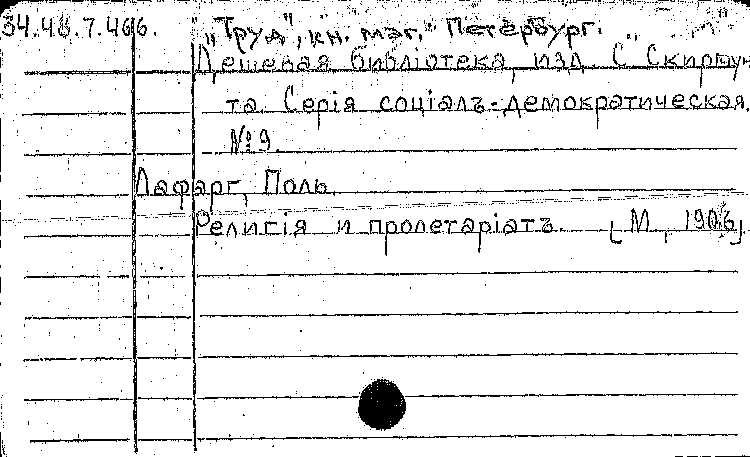 34.48.7.466. „Труд", кн. маг., Петербург.
Дешевая библiотека, изд. С. Скирмун-
та. Серiя соцiалъ-демократическая.
№9.
Лафарг, Поль.
Религiя и пролетарiатъ. [М, 1906]